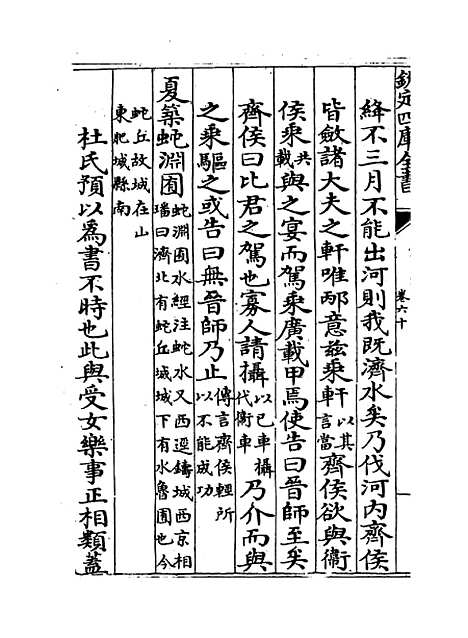 欽定四庫全書
卷六十
絳不三月不能出河則我既濟水矣乃伐河内齊侯
皆斂諸大夫之軒唯邴意兹乘軒以其言當齊侯欲與衛
侯乘共載與之宴而駕乘廣載甲焉使告曰晉師至矣
齊侯曰比君之駕也寡人請攝以已車攝代衛車乃介而與
之乘驅之或告曰無晉師乃止傳言齊侯輕所以不能成功
夏築蛇淵囿蛇淵囿水經注蛇水又西逕鑄城西京相璠曰濟北有蛇丘城城下有水魯囿也今
蛇丘故城在山東肥城縣南
杜氏預以爲書不時也此與受女樂事正相類蓋